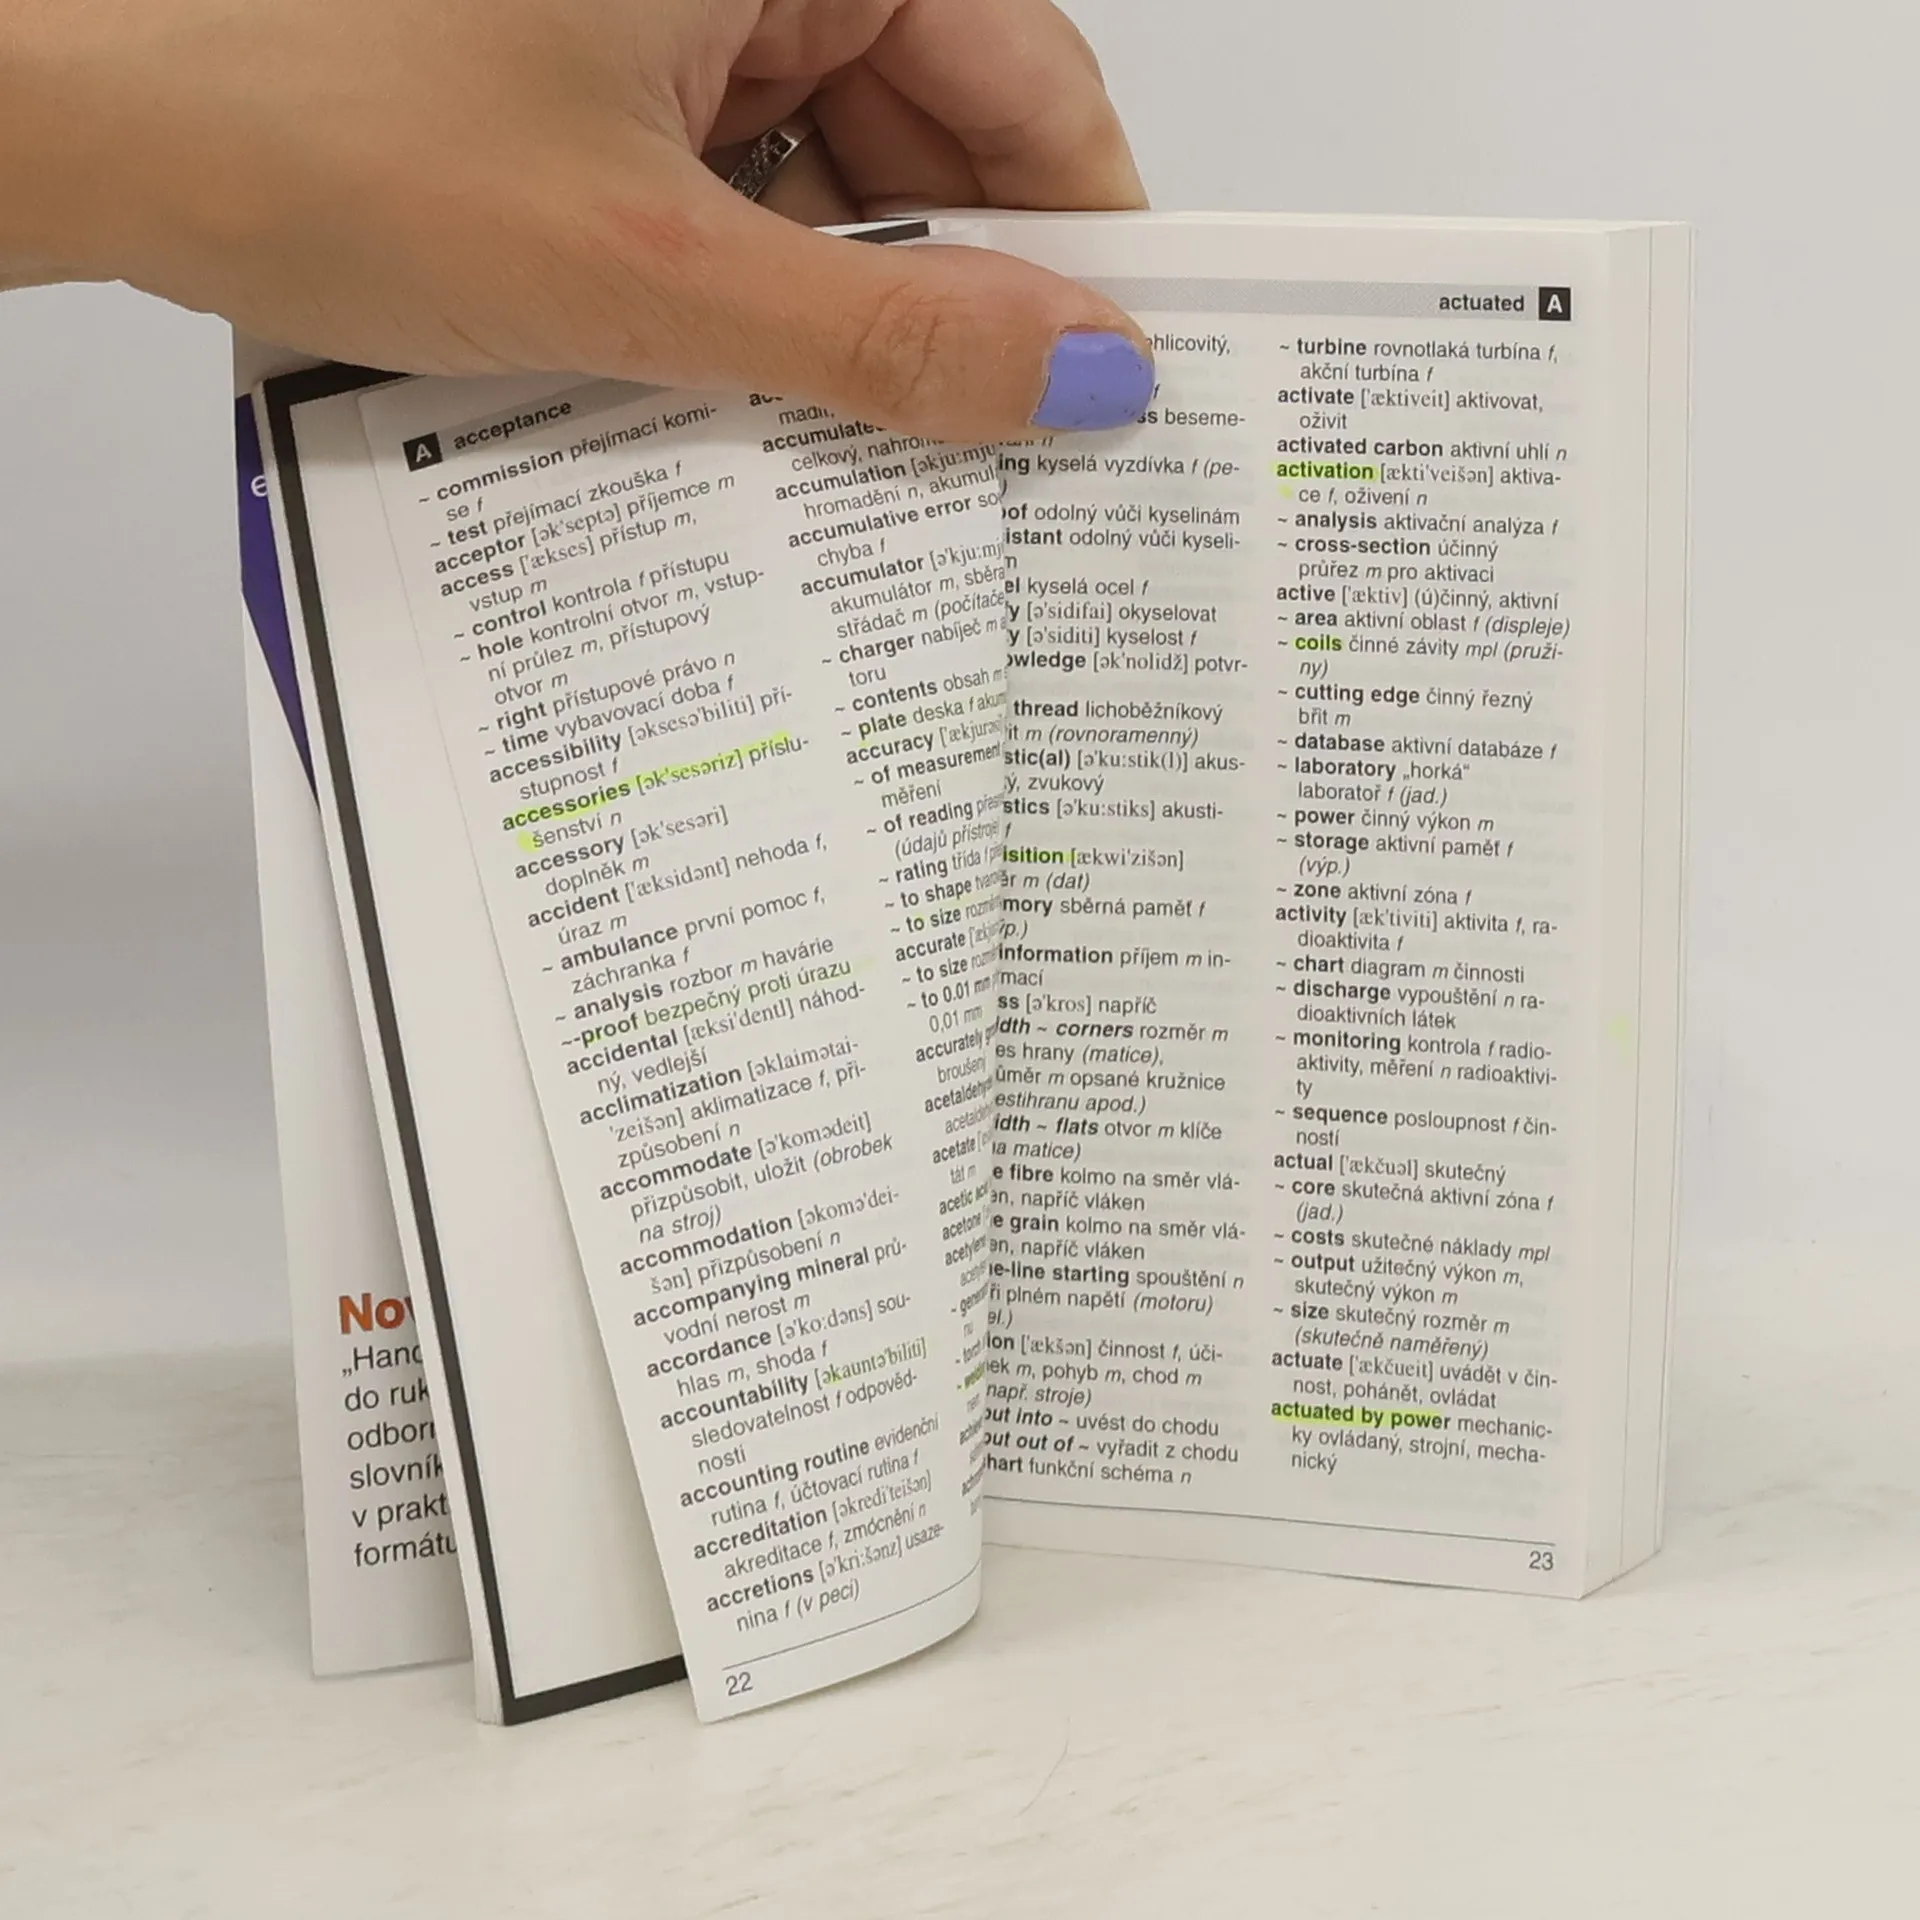 A acceptance
~ commission přejímací komi-
se f
~ test přejímací zkouška f
acceptor [ək'septə] příjemce m
access ['ækses] přístup m,
vstup m
~ control kontrola f přístupu
~ hole kontrolní otvor m, vstup-
ní průlez m, přístupový
otvor m
~ right přístupové právo n
~ time vybavovací doba f
accessibility [əksesə'biliti] pří-
stupnost f
accessories [ək'sesəriz] příslu-
šenství n
accessory [ək'sesəri]
doplněk m
accident ['æksidənt] nehoda f,
úraz m
~ ambulance první pomoc f,
záchranka f
~ analysis rozbor m havárie
~-proof bezpečný proti úrazu
accidental [æksi'dentl] náhod-
ný, vedlejší
acclimatization [əklaimətai-
'zeišən] aklimatizace f, při-
způsobení n
accommodate [ə'komədeit]
přizpůsobit, uložit (obrobek
na stroj)
accommodation [əkomə'dei-
šən] přizpůsobení n
accompanying mineral prů-
vodní nerost m
accordance [ə'ko:dəns] sou-
hlas m, shoda f
accountability [əkauntə'biliti]
sledovatelnost f odpověd-
nosti
accounting routine evidenční
rutina f, účtovací rutina f
accreditation [əkredi'teišən]
akreditace f, zmocnění n
accretions [ə'kri:šənz] usaze-
nina f (v peci)
22
celkový,
accumulation
hromadění n,
accumulative error
chyba f
accumulator
akumulátor m,
střádač m
~ charger nabíječ m
toru
~ contents obsah m
~ plate deska f
accuracy
~ of measurement
měření
~ of reading
(údajů přístroje)
~ rating třída f
~ to shape
~ to size
accurate
~ to size
~ to 0.01 mm
0,01 mm
accurately
broušený
actuated A
beseme-
kyselá vyzdívka f (pe-
odolný vůči kyselinám
odolný vůči kyseli-
kyselá ocel f
[ə'sidifai] okyselovat
[ə'siditi] kyselost f
[ək'nolidž] potvr-
thread lichoběžníkový
m (rovnoramenný)
[ə'ku:stik(l)] akus-
zvukový
[ə'ku:stiks] akusti-
f
[ækwi'zišən]
m (dat)
sběrná paměť f
information příjem m in-
[ə'kros] napříč
~ corners rozměr m
hrany (matice),
m opsané kružnice
apod.)
~ flats otvor m klíče
matice)
fibre kolmo na směr vlá-
napříč vláken
grain kolmo na směr vlá-
napříč vláken
starting spouštění n
plném napětí (motoru)
['ækšən] činnost f, úči-
m, pohyb m, chod m
stroje)
into ~ uvést do chodu
out of ~ vyřadit z chodu
funkční schéma n
~ turbine rovnotlaká turbína f,
akční turbína f
activate ['æktiveit] aktivovat,
oživit
activated carbon aktivní uhlí n
activation [ækti'veišən] aktiva-
ce f, oživení n
~ analysis aktivační analýza f
~ cross-section účinný
průřez m pro aktivaci
active ['æktiv] (ú)činný, aktivní
~ area aktivní oblast f (displeje)
~ coils činné závity mpl (pruži-
ny)
~ cutting edge činný řezný
břit m
~ database aktivní databáze f
~ laboratory „horká“
laboratoř f (jad.)
~ power činný výkon m
~ storage aktivní paměť f
(výp.)
~ zone aktivní zóna f
activity [æk'tiviti] aktivita f, ra-
dioaktivita f
~ chart diagram m činnosti
~ discharge vypouštění n ra-
dioaktivních látek
~ monitoring kontrola f radio-
aktivity, měření n radioaktivi-
ty
~ sequence posloupnost f čin-
ností
actual ['ækčuəl] skutečný
~ core skutečná aktivní zóna f
(jad.)
~ costs skutečné náklady mpl
~ output užitečný výkon m,
skutečný výkon m
~ size skutečný rozměr m
(skutečně naměřený)
actuate ['ækčueit] uvádět v čin-
nost, pohánět, ovládat
actuated by power mechanic-
ky ovládaný, strojní, mecha-
nický
23
do
v